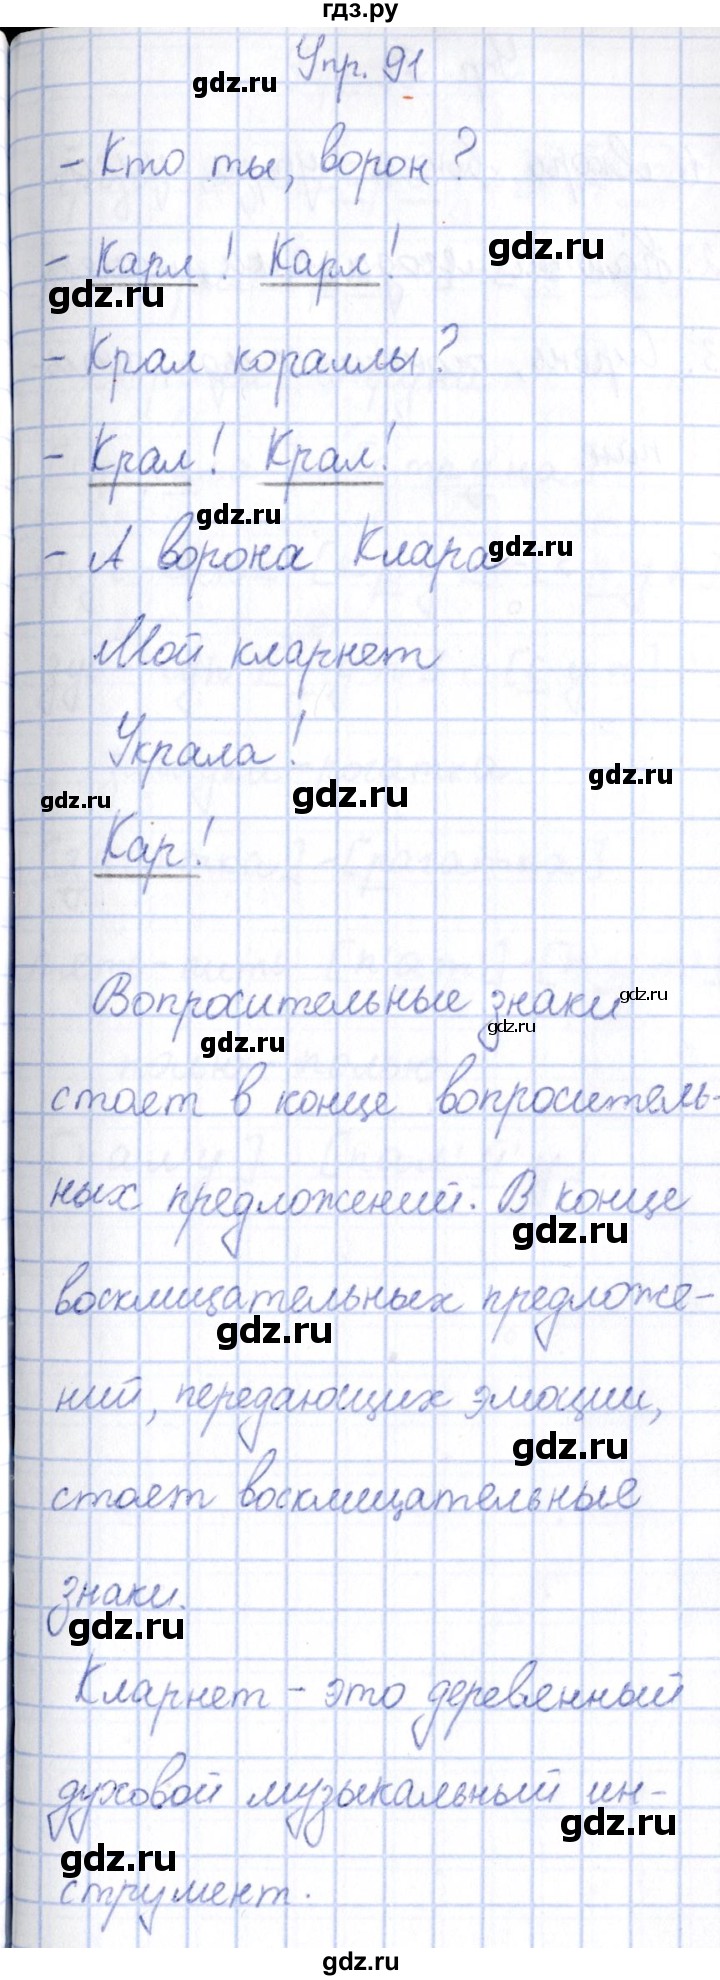 гдз.ру
Упр. 91
gdz.ru
- Кто ты, ворон?
- Карл! Карл!
gdz.ru
gdz.ru
- Крал кораллы?
- Крал! Крал!
gdz.ru
- А ворона Клара
gdz.ru
Мой кларнет
Украла!
gdz.ru
gdz.ru
gdz.ru
Кар!
Вопросительные знаки
gdz.ru
gdz.ru
gdz.ru
стоят в конце вопроситель-
ных предложений. В конце
gdz.ru
восклицательных предложе-
gdz.ru
ний, передающих эмоции,
gdz.ru
стоят восклицательные
знаки.
gdz.ru
Кларнет - это деревянный
духовой музыкальный ин-
gdz.ru
gdz.ru
струмент.
gdz.ru